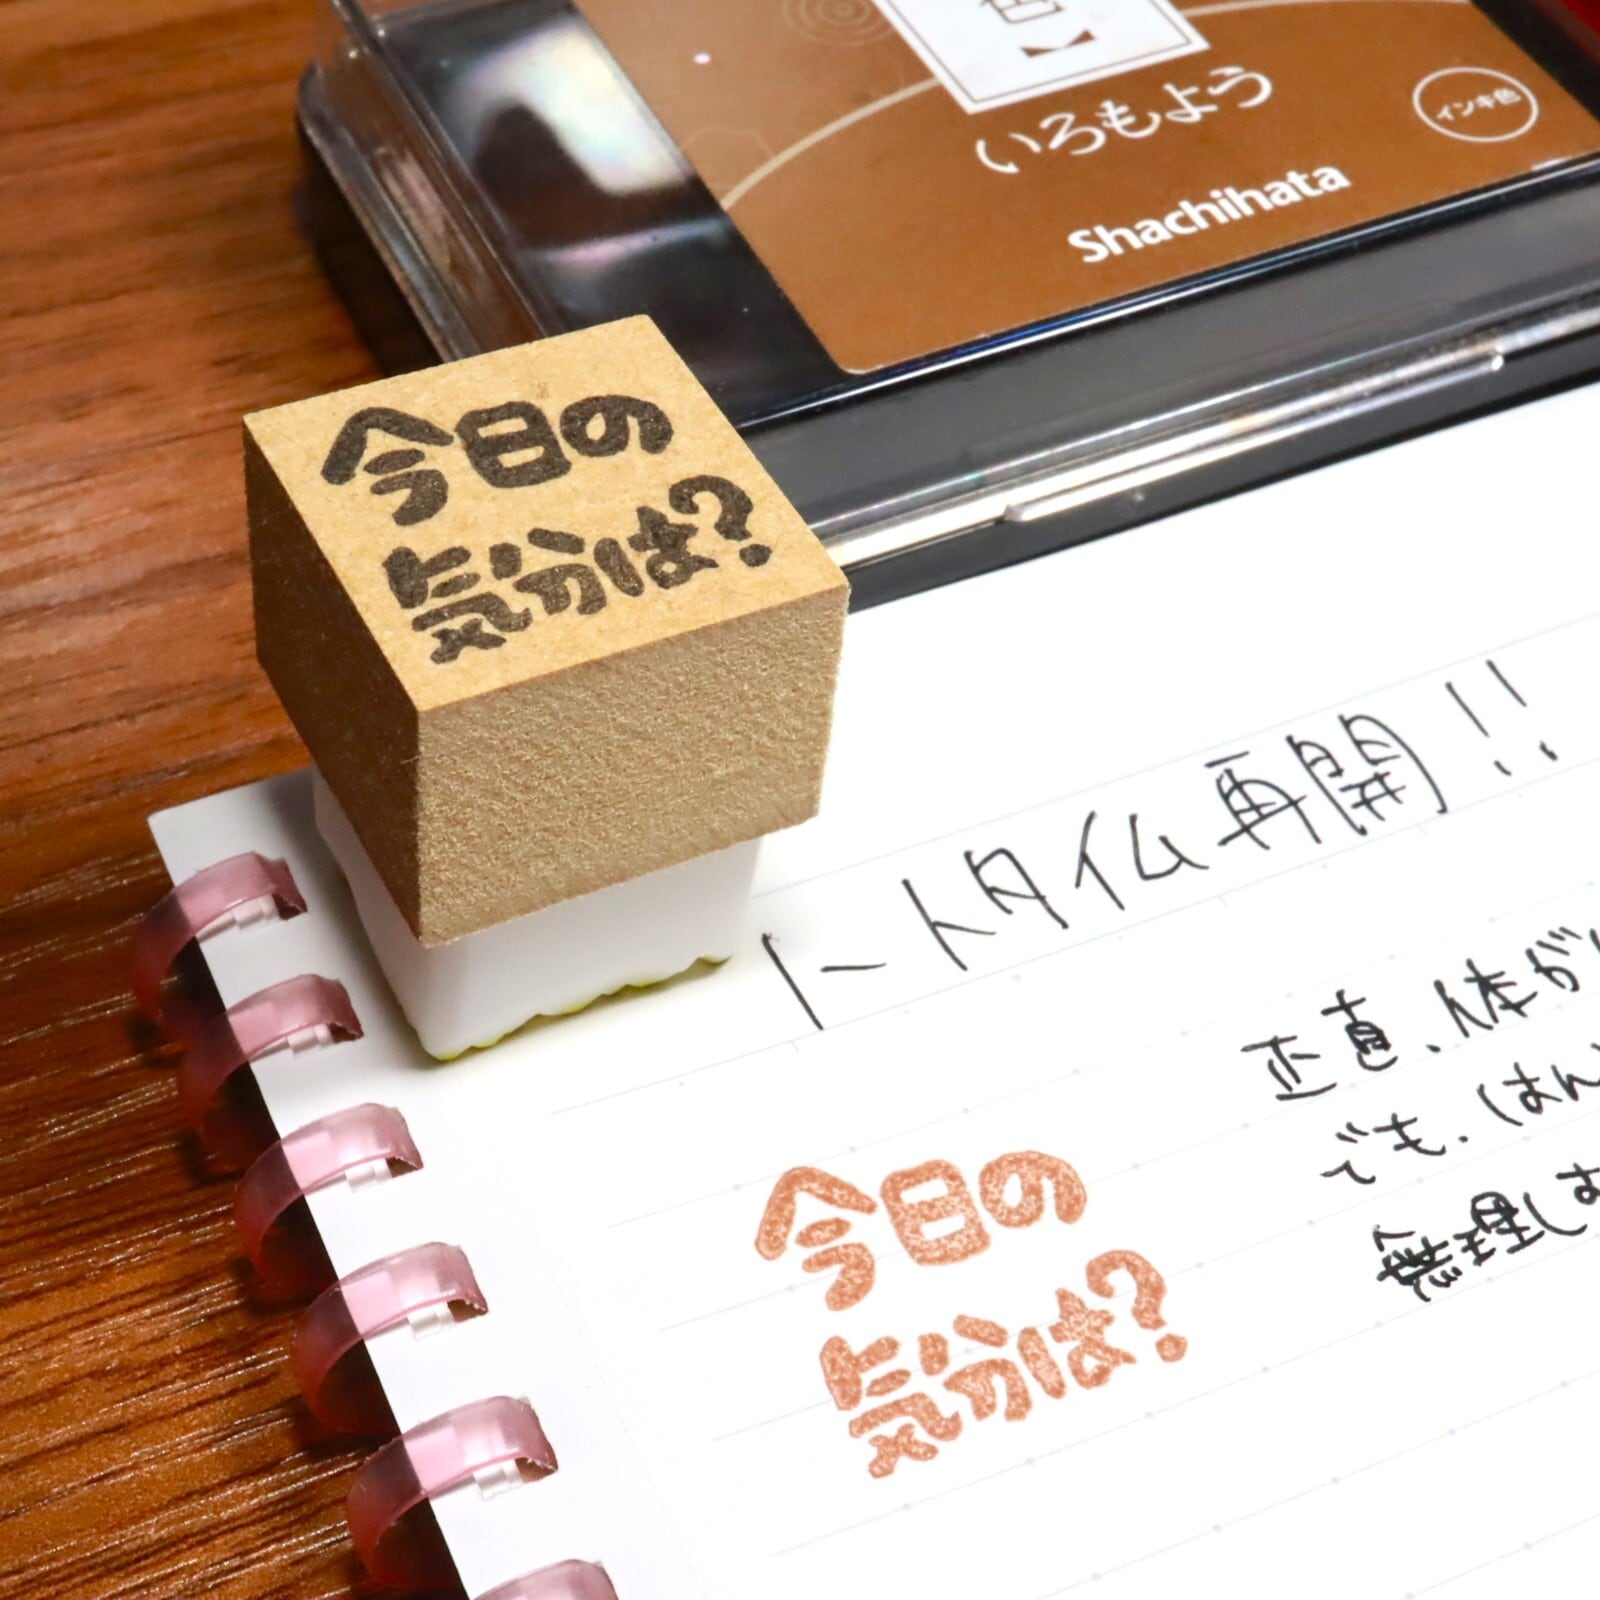 色
】
いろもよう
インキ色
Shachihata
今日の
気分は?
トータイム再開!!
正直、体が
でも、(はん
無理しな
今日の
気分は?